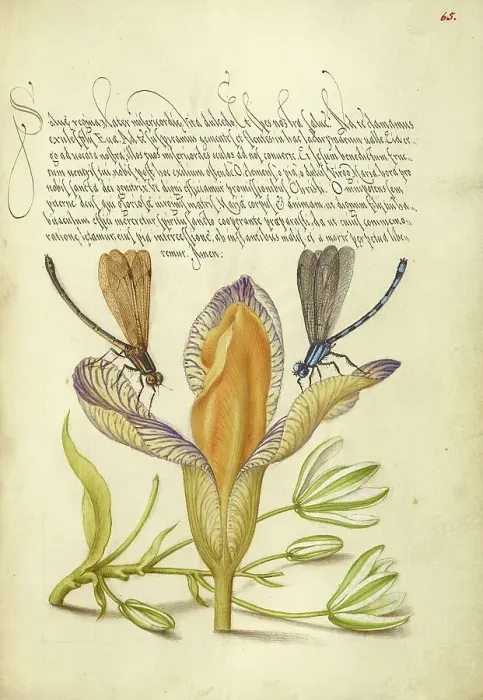 65.
Salue regina Mater misericordiae, vita dulcedo Et spes nostra salue. Ad te clamamus
exules filij Euae. Ad te suspiramus gementes et flentes in hac lachrimarum ualle. Eia er-
go aduocata nostra illos tuos misericordes oculos ad nos conuerte. Et Iesum benedictum fruc-
tum uentris tui nobis post hoc exilium ostende. O clemens o pia o dulcis Virgo Maria. Ora pro
nobis sancta dei genetrix Vt digni efficiamur promissionibus Christi. Omnipotens sem-
piterne deus, qui gloriosae uirginis matris Mariae corpus et animam ut dignum filij tui ha-
bitaculum effici mereretur spiritu sancto cooperante praeparasti, da ut cuius commemo-
ratione laetamur, eius pia intercessione, ab instantibus malis, et a morte perpetua libe-
remur. Amen.